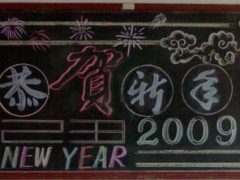 恭贺新年
2009
NEW YEAR